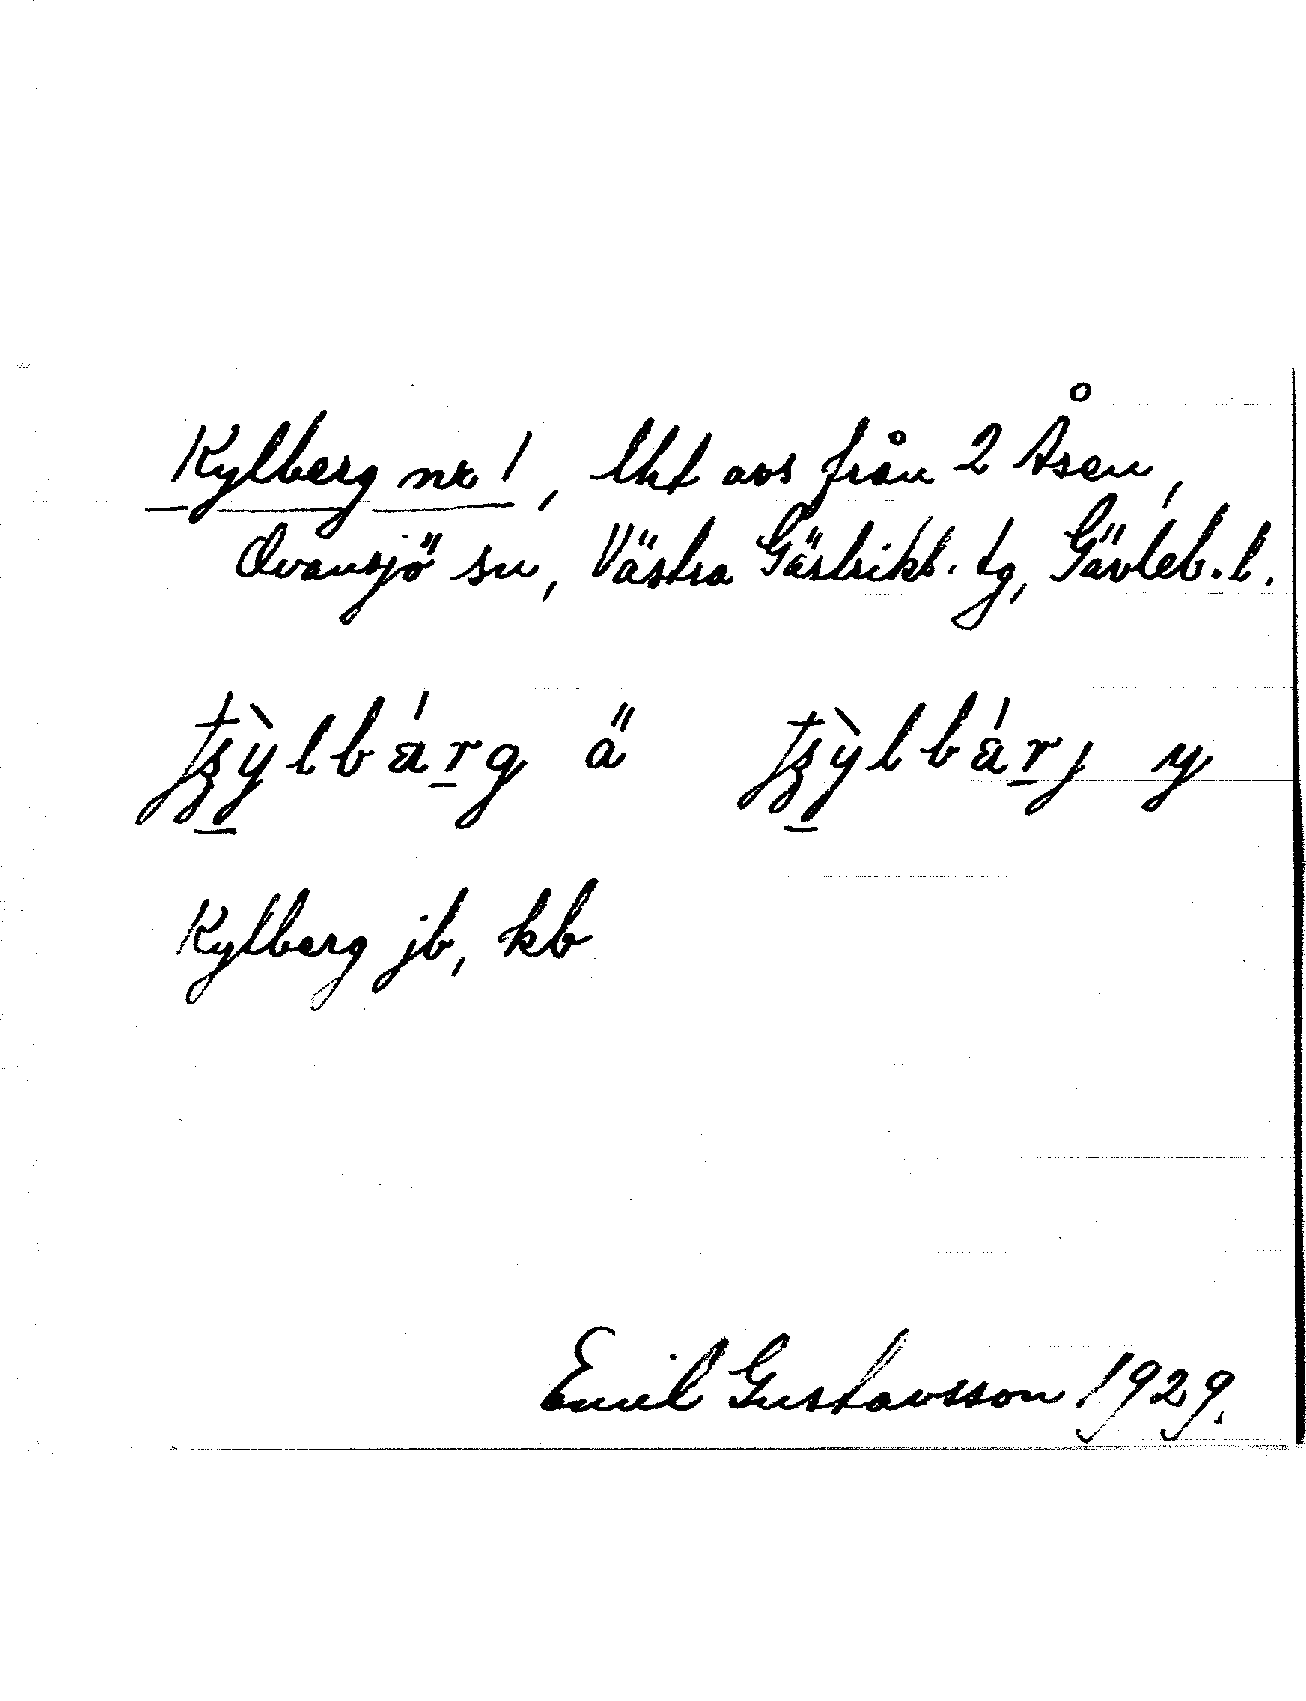 Kylberg nr 1, lht avs från 2 Åsen,
Ovansjö sn, Västra Gästrikl. tg, Gävleb. l.
tʒ̠ỳlbá̈r̠g ä tʒ̠ỳlbá̈r̠j y
Kylberg jb, kb
Emil Gustavsson 1929.